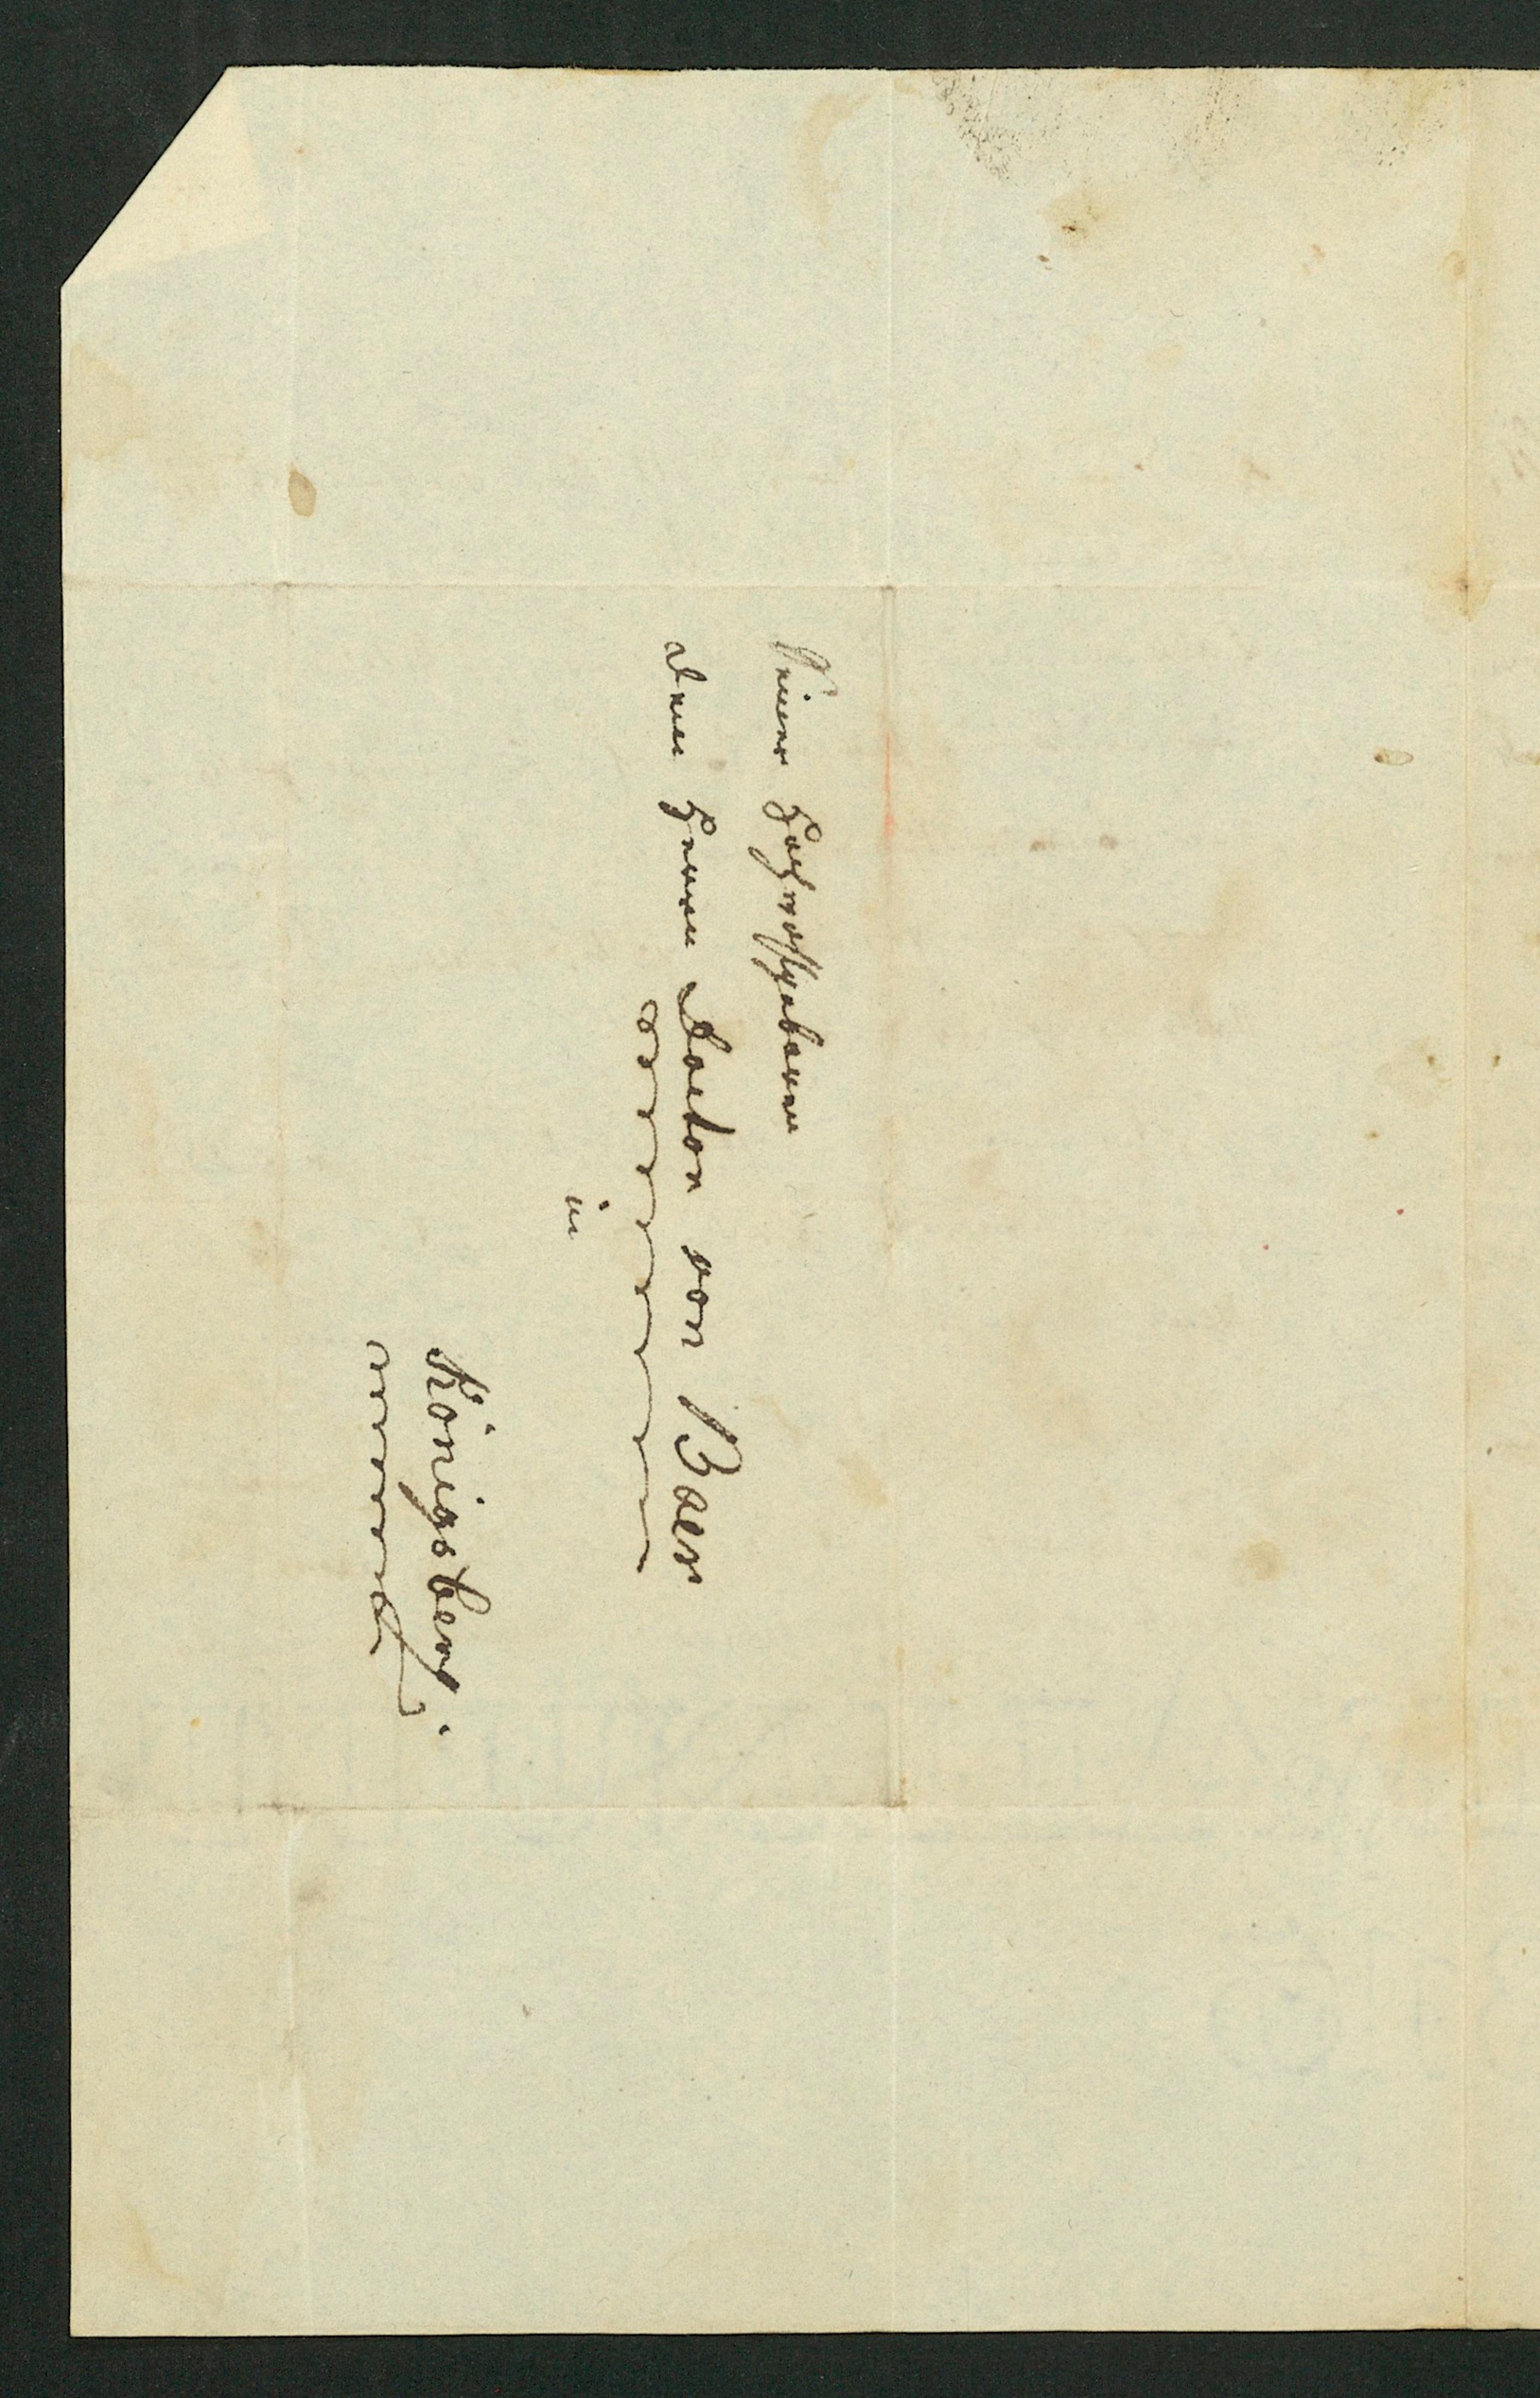 Seiner Hochwohlgeboren
dem Herren Doctor von Baer
in
Königsberg.